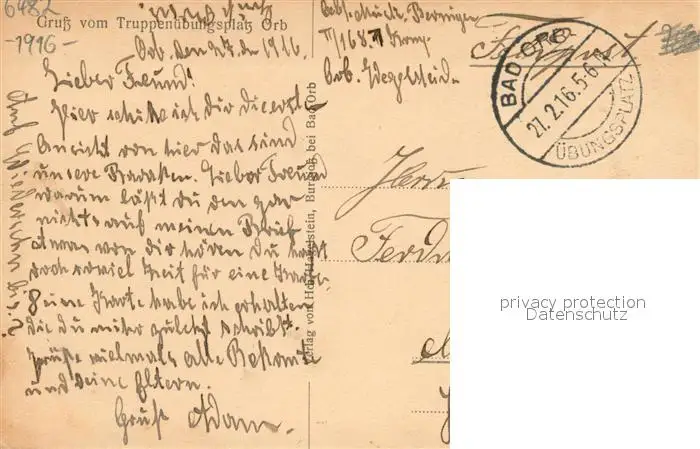 6482
-1916-
Gruß vom Truppenübungsplatz Orb
Orb, den 27. 2. 1916.
Lieber Freund!
Hier schicke ich dir die erste
Ansicht von hier das sind
unsere Baraken. Lieber Freund
warum läßt du den gar
nichts auf meinen Brief
etwas von dir hören du hast
doch soviel Zeit für eine Karte
Eine Karte habe ich erhalten
die du mir zuletzt schriebst.
Grüße vielmals alle Bekannte
und deine Eltern.
Gruß Adam.
Auf Wiedersehen
Verlag von Hch. Hagelstein, Burgjoß, bei Bad Orb
II/168.
Orb. Wegscheide
Feldpost
BAD ORB
27.2.16.5-6
ÜBUNGSPLATZ
Herrn
Ferdi
privacy protection
Datenschutz